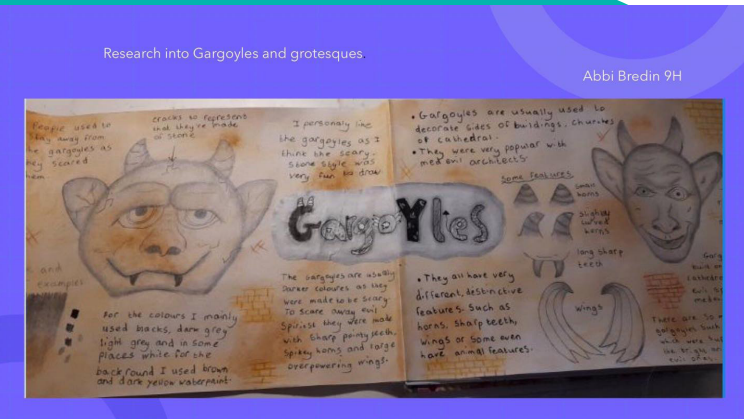 Research into Gargoyles and grotesques.
Abbi Bredin 9H
People used to
stay away from
the gargoyles as
they scared
them.
cracks to represent
that they're made
of stone
I personaly like
the gargoyles as I
think the scary.
Stone style was
very fun to draw
GargoYles
and
examples
For the colours I mainly
used blacks, dark grey
light grey and in some
places white for the
back round I used brown
and dark yellow waterpaint.
The Gargoyles are usually
Darker colours as they
were made to be scary.
To scare away evil
Spirist they were made
with sharp pointy teeth.
Spikey horns and large
overpowering wings.
• Gargoyles are usually used to
decorate sides of buildings. Churches
of cathedral.
• They were very popular with
med evil architects.
Some features
small
horns
slightly
curved
horns
long sharp
teeth
Wings
• They all have very
different, destinctive
features. Such as
horns, sharp teeth,
wings or some even
have animal features.
Garg
cathedra
evil sp
There are so m
gargoyles such
which were
the bright
evil